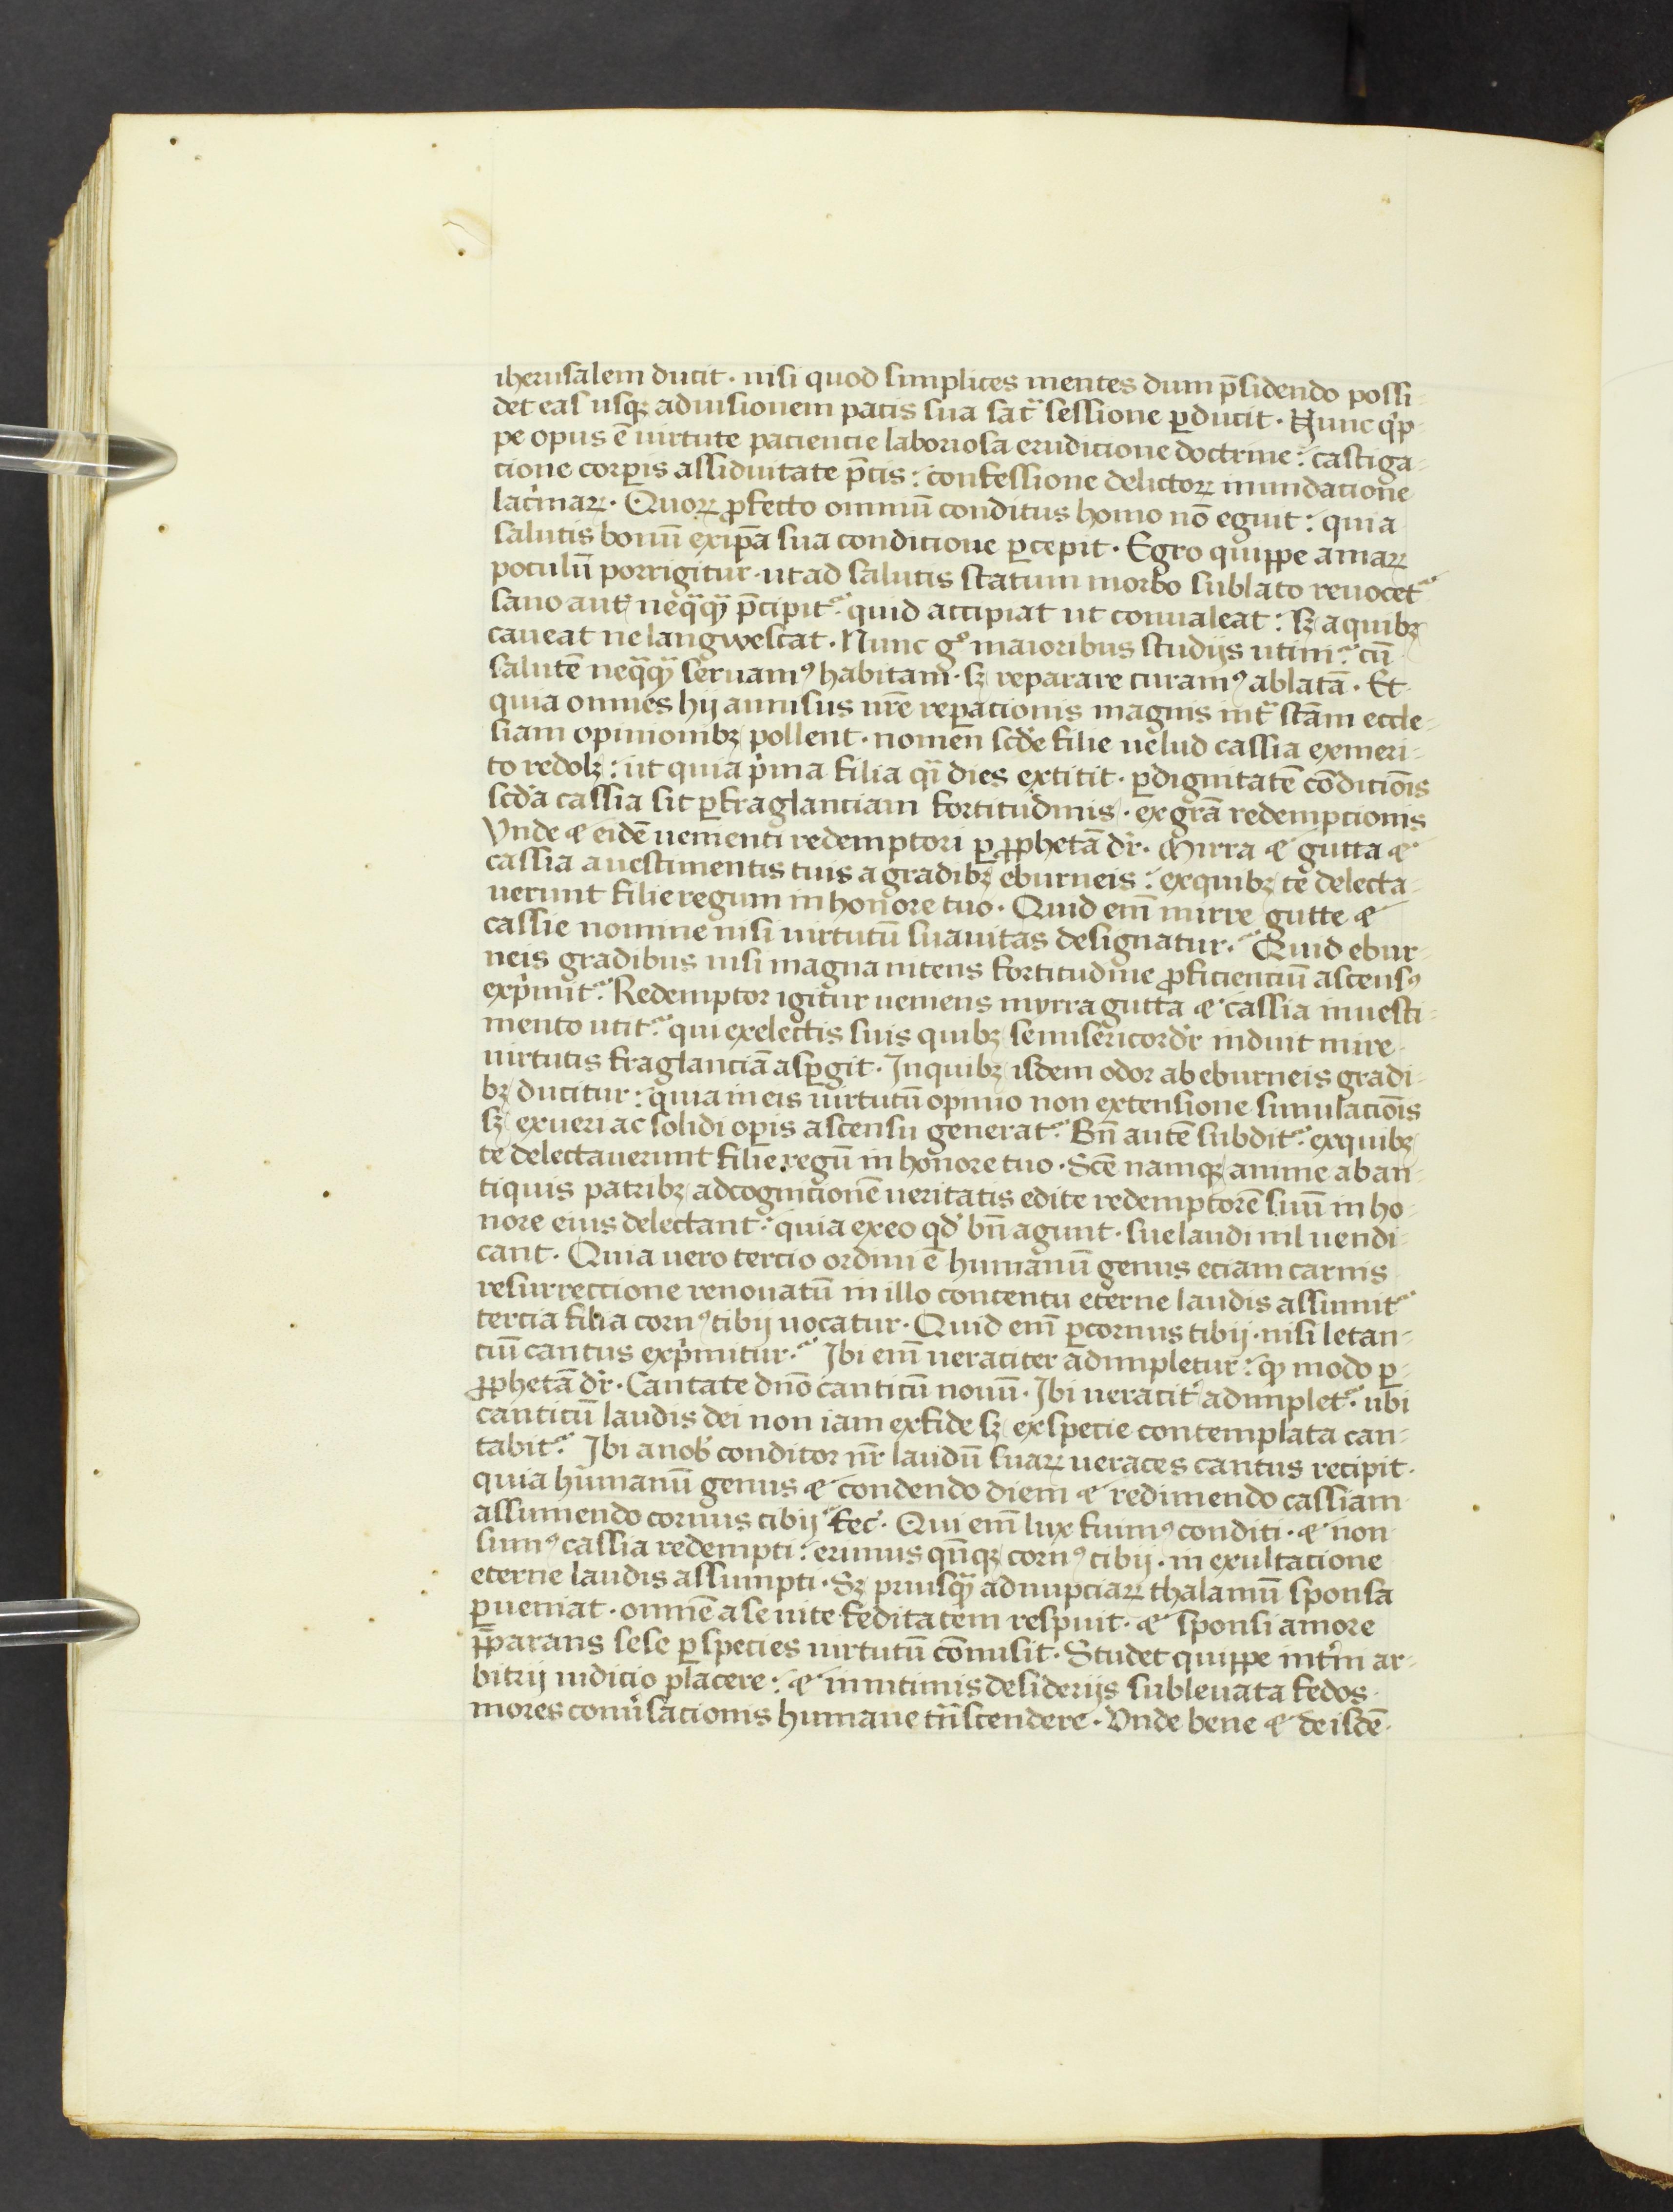 iherusalem ducit · nisi quod simplices mentes dum p̄sidendo possi-
det eas usqꝫ aduisionem pacis sua sacᷓ sessione ꝑducit · Nunc qͥp-
pe opus ē uirtute paciencie laboriosa erudicione doctrine : castiga-
cione corꝑis assiduitate p̄cis : confessione delictoꝝ inundacione
lacͥmaꝝ · Quoꝝ ꝓfecto omniū conditus homo nō eguit : quia
salutis bonū exip̄a sua condicione ꝑcepit · Egro quippe amaꝝ
poculū porrigitur · ut ad salutis statum morbo sublato reuocet᷑
sano aut̄ neq̄q̄ p̄cipit᷑ quid accipiat ut conualeat : sꝫ aquibꝫ
caueat ne langwescat · Nunc gͦ maioribus studijs utim᷑ cū
salutē neq̄q̄ seruamꝰ habitam · sꝫ reparare curamꝰ ablatā · Et
quia omnes hij annisus nr̄e reꝑacionis magnis int᷑ scām eccle-
siam opinionibꝫ pollent · nomen scd̄e filie uelud cassia exmeri-
to redolꝫ : ut quia pͥma filia q̄ dies extitit · ꝑdignitatē cōdiciōis
scd̄a cassia sit ꝑfraglanciam fortitudinis · exgrā redempcionis
Vnde ⁊ eidē uenienti redemptori ꝑ ꝓphetā dr̄ · Mirra ⁊ gutta ⁊
cassia auestimentis tuis agradibꝫ eburneis : exquibꝫ te delecta-
uerunt filie regum in honore tuo · Quid em̄ mirre gutte ⁊
cassie nomine nisi uirtutū suauitas designatur · Quid ebur-
neis gradibus nisi magna nitens fortitudine ꝓficienciū ascensꝰ
expͥmit᷑ Redemptor igitur ueniens myrra gutta ⁊ cassia inuesti-
mento utit᷑ qui exelectis suis quibꝫ semisericordr̄ induit mire
uirtutis fraglanciā asꝑgit · Inquibꝫ isdem odor ab eburneis gradi-
bꝫ ducitur : quia in eis uirtutū opinio non extensione simulaciōis
sꝫ exueri ac solidi oꝑis ascensu generat᷑ Bn̄ autē subdit᷑ exquibꝫ
te delectauerunt filie regū in honore tuo · Scē namqꝫ anime aban-
tiquis patribꝫ adcognicionē ueritatis edite redemptorē suū in ho-
nore eius delectant : quia exeo qd̓ bn̄ agunt · sue laudi nil uendi-
cant · Quia uero tercio ordini ē humanū genus eciam carnis
resurreccione renouatū in illo concentu eterne laudis assumit᷑
tercia filia cornꝰ tibij uocatur · Quid em̄ ꝑcornus tibij · nisi letan-
ciū cantus expͥmitur · Ibi em̄ ueraciter adimpletur : qͩ modo ꝑ-
ꝓphetā dr̄ · Cantate dnō canticū nouū · Ibi ueracit̓ adimplet᷑ · ubi
canticū laudis dei non iam exfide sꝫ exspecie contemplata can-
tabit᷑ Ibi anob̓ conditor nr̄ laudū suaꝝ ueraces cantus recipit ·
quia humanū genus ⁊ condendo diem ⁊ redimendo cassiam
assumendo cornus tibij fec̓ · Qui em̄ lux fuimꝰ conditi · ⁊ non
sumꝰ cassia redempti : erimus qn̄qꝫ cornꝰ tibij · in exultacione
eterne laudis assumpti · Sꝫ priusq̄ adnupciaꝝ thalamū sponsa
ꝑueniat · omnē a se uite feditatem respuit · ⁊ sponsi amore
p̄parans sese ꝑ species uirtutū cōmisit · Studet quippe int̓ni ar-
bitrij iudicio placere : ⁊ inintimis desiderijs subleuata fedos
mores conu̓sacionis humane tn̄scendere · Vnde bene ⁊ deisdē